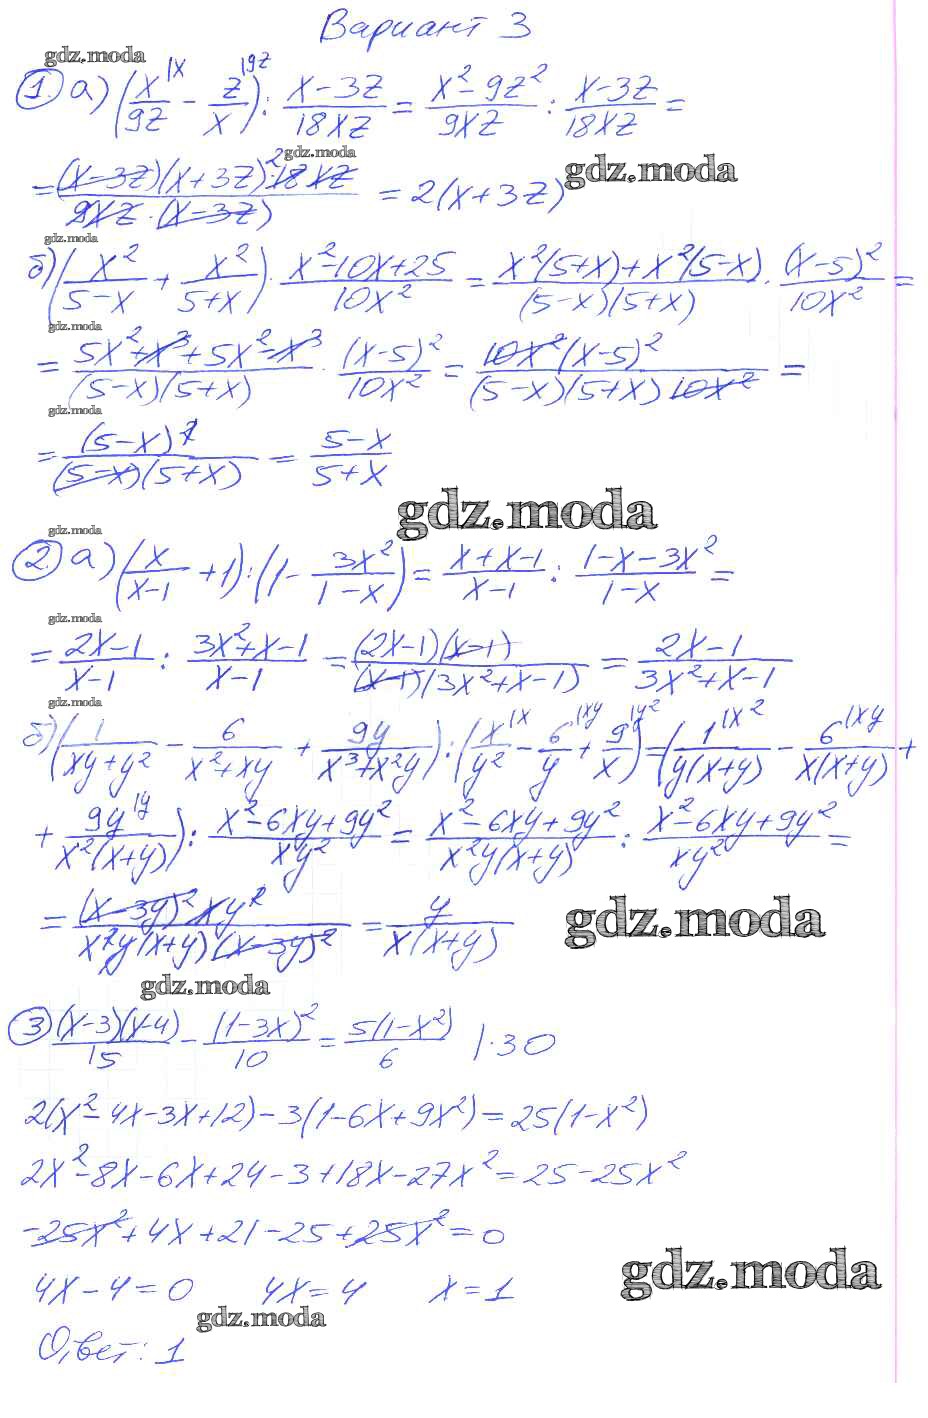 Вариант 3
gdz.moda
1. а) (x/9z |x − z/x |9z) : (x−3z)/(18xz) = (x²−9z²)/(9xz) : (x−3z)/(18xz) =
gdz.moda
= ((x−3z)(x+3z)·18xz 2)/(9xz·(x−3z)) = 2(x+3z)
gdz.moda
gdz.moda
б) (x²/(5−x) + x²/(5+x)) · (x²−10x+25)/(10x²) = (x²(5+x)+x²(5−x))/((5−x)(5+x)) · (x−5)²/(10x²) =
gdz.moda
= (5x²+x³+5x²−x³)/((5−x)(5+x)) · (x−5)²/(10x²) = (10x²(x−5)²)/((5−x)(5+x)10x²) =
gdz.moda
= (5−x)²/((5−x)(5+x)) = (5−x)/(5+x)
gdz.moda
gdz.moda
2. а) (x/(x−1) + 1) : (1 − 3x²/(1−x)) = (x+x−1)/(x−1) : (1−x−3x²)/(1−x) =
gdz.moda
= (2x−1)/(x−1) : (3x²+x−1)/(x−1) = ((2x−1)(x−1))/((x−1)(3x²+x−1)) = (2x−1)/(3x²+x−1)
gdz.moda
б) (1/(xy+y²) − 6/(x²+xy) + 9y/(x³+x²y)) : (x/y² |x − 6/y |xy + 9/x |y²) = (1/(y(x+y)) |x² − 6/(x(x+y)) |xy +
+ 9y/(x²(x+y)) |y) : (x²−6xy+9y²)/(xy²) = (x²−6xy+9y²)/(x²y(x+y)) : (x²−6xy+9y²)/(xy²) =
= ((x−3y)²xy²)/(x²y(x+y)(x−3y)²) = y/(x(x+y))
gdz.moda
gdz.moda
3 ((x−3)(x−4))/15 − (1−3x)²/10 = (5(1−x²))/6 |·30
2(x²−4x−3x+12)−3(1−6x+9x²)=25(1−x²)
2x²−8x−6x+24−3+18x−27x²=25−25x²
−25x²+4x+21−25+25x²=0
4x−4=0 4x=4 x=1
gdz.moda
gdz.moda
Ответ: 1